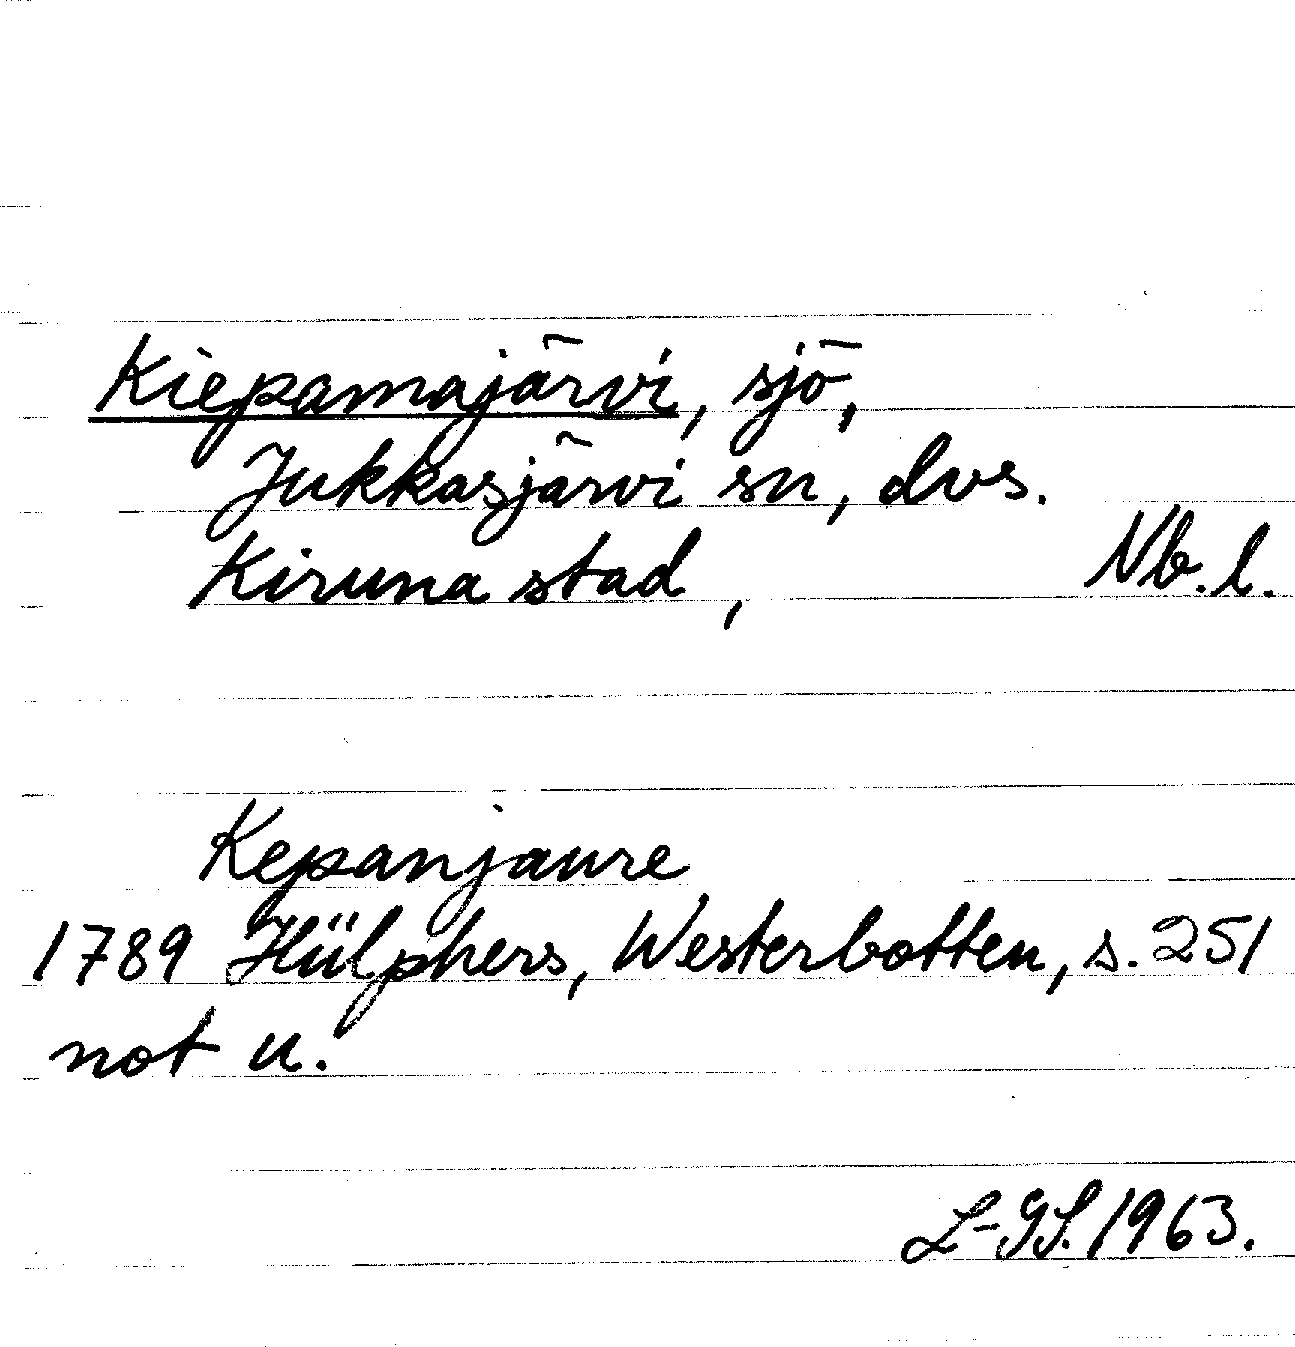 Kiepamajärvi, sjö,
Jukkasjärvi sn, dvs.
Kiruna stad, Nb.l.
Kepanjaure
1789 Hülphers, Westerbotten, s. 251
not u.
L-GS. 1963.